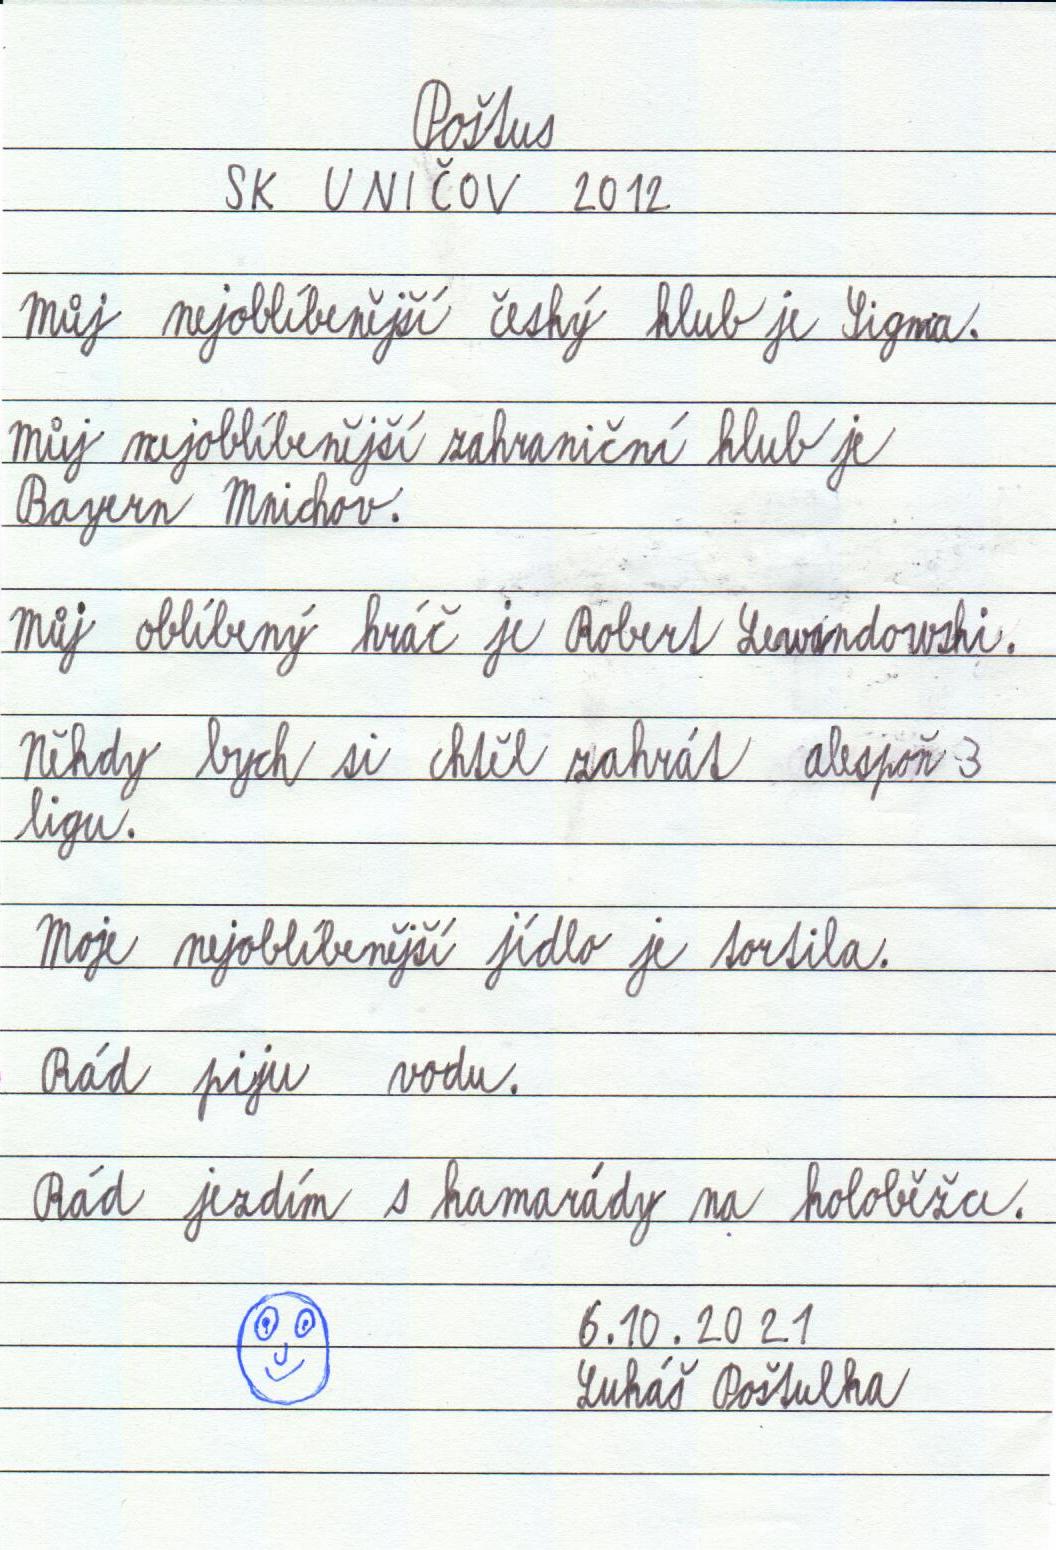 Poštus
SK UNIČOV 2012
Můj nejoblíbenější český klub je Sigma.
Můj nejoblíbenější zahraniční klub je
Bayern Mnichov.
Můj oblíbený hráč je Robert Lewandowski.
Někdy bych si chtěl zahrát alespoň 3
ligu.
Moje nejoblíbenější jídlo je tortila.
Rád piju vodu.
Rád jezdím s kamarády na koloběžce.
6.10.2021
Lukáš Poštulka